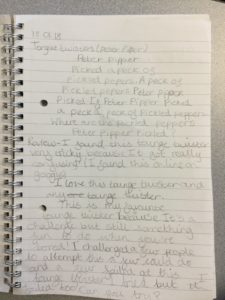 Tongue twisters (Peter Piper)
Peter Pipper
Picked a peck of
Pickled pepers. A peck of
Pickled pepers Peter Pipper
Picked. If Peter Pipper Picked
a peck of pickled peppers
where are the pickled peppers
Peter Pipper Picked?
Review- I found this tounge twister
very tricky because it got really
confusing! I found this online on
google
I love this tounge twister and
my
This is my favourite
tounge twister because it's a
challenge but still something
fun to do when you're
bored! I challenged a few people
to attempt this a few could do it
and a few failed at it. I